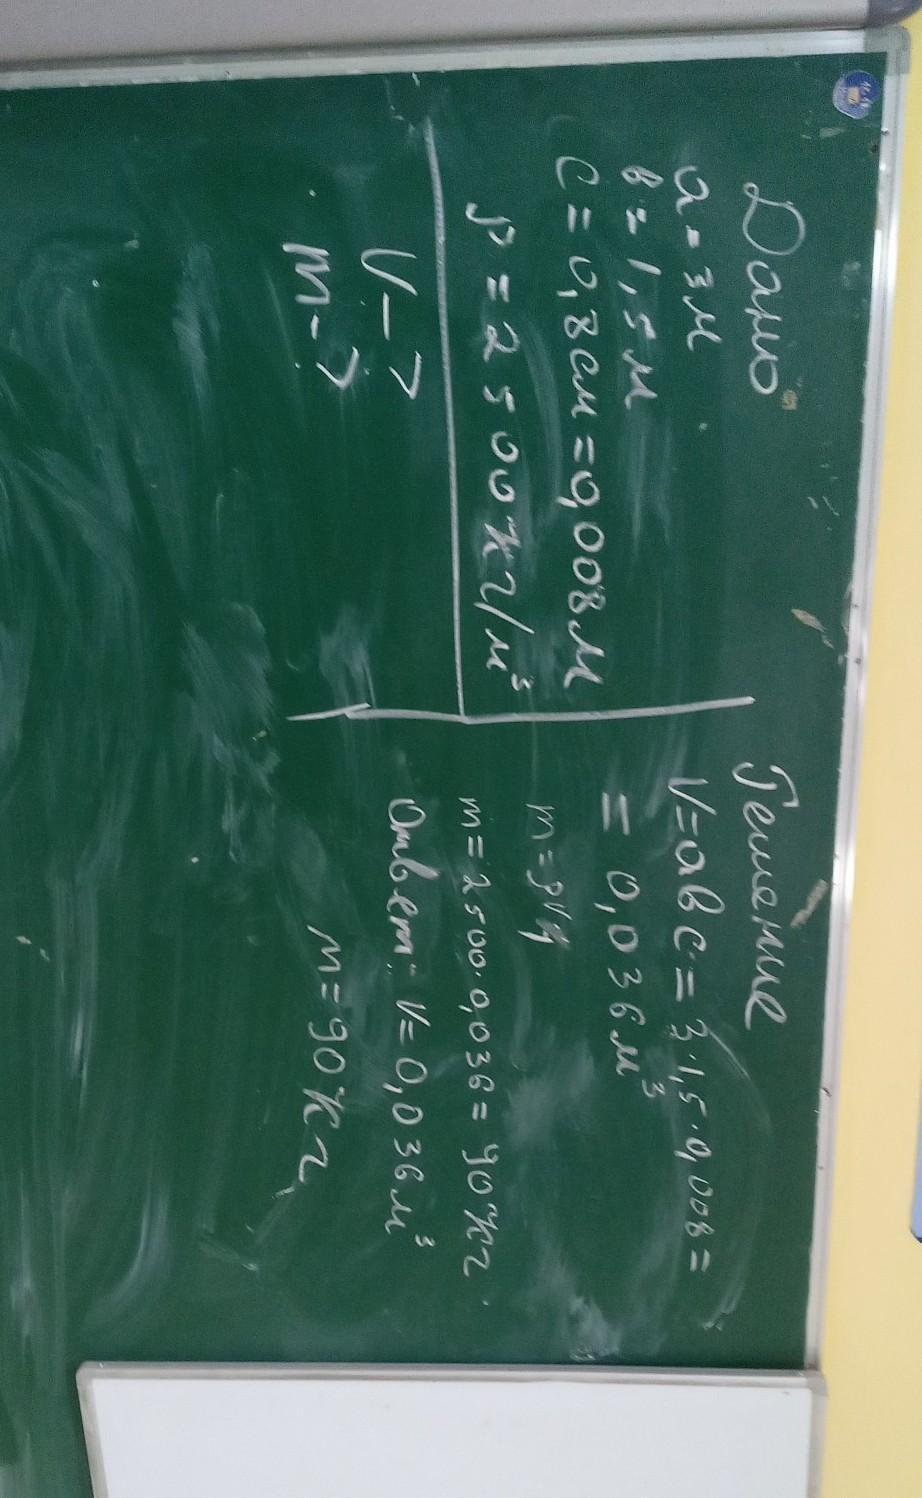 Дано
a = 3м
в = 1,5м
с = 0,8см = 0,008м
ρ = 2500кг/м³
V - ?
m - ?
Решение
V = abc = 3·1,5·0,008 =
= 0,036м³
m = ρV
m = 2500·0,036 = 90кг
Ответ: V = 0,036м³
m = 90кг